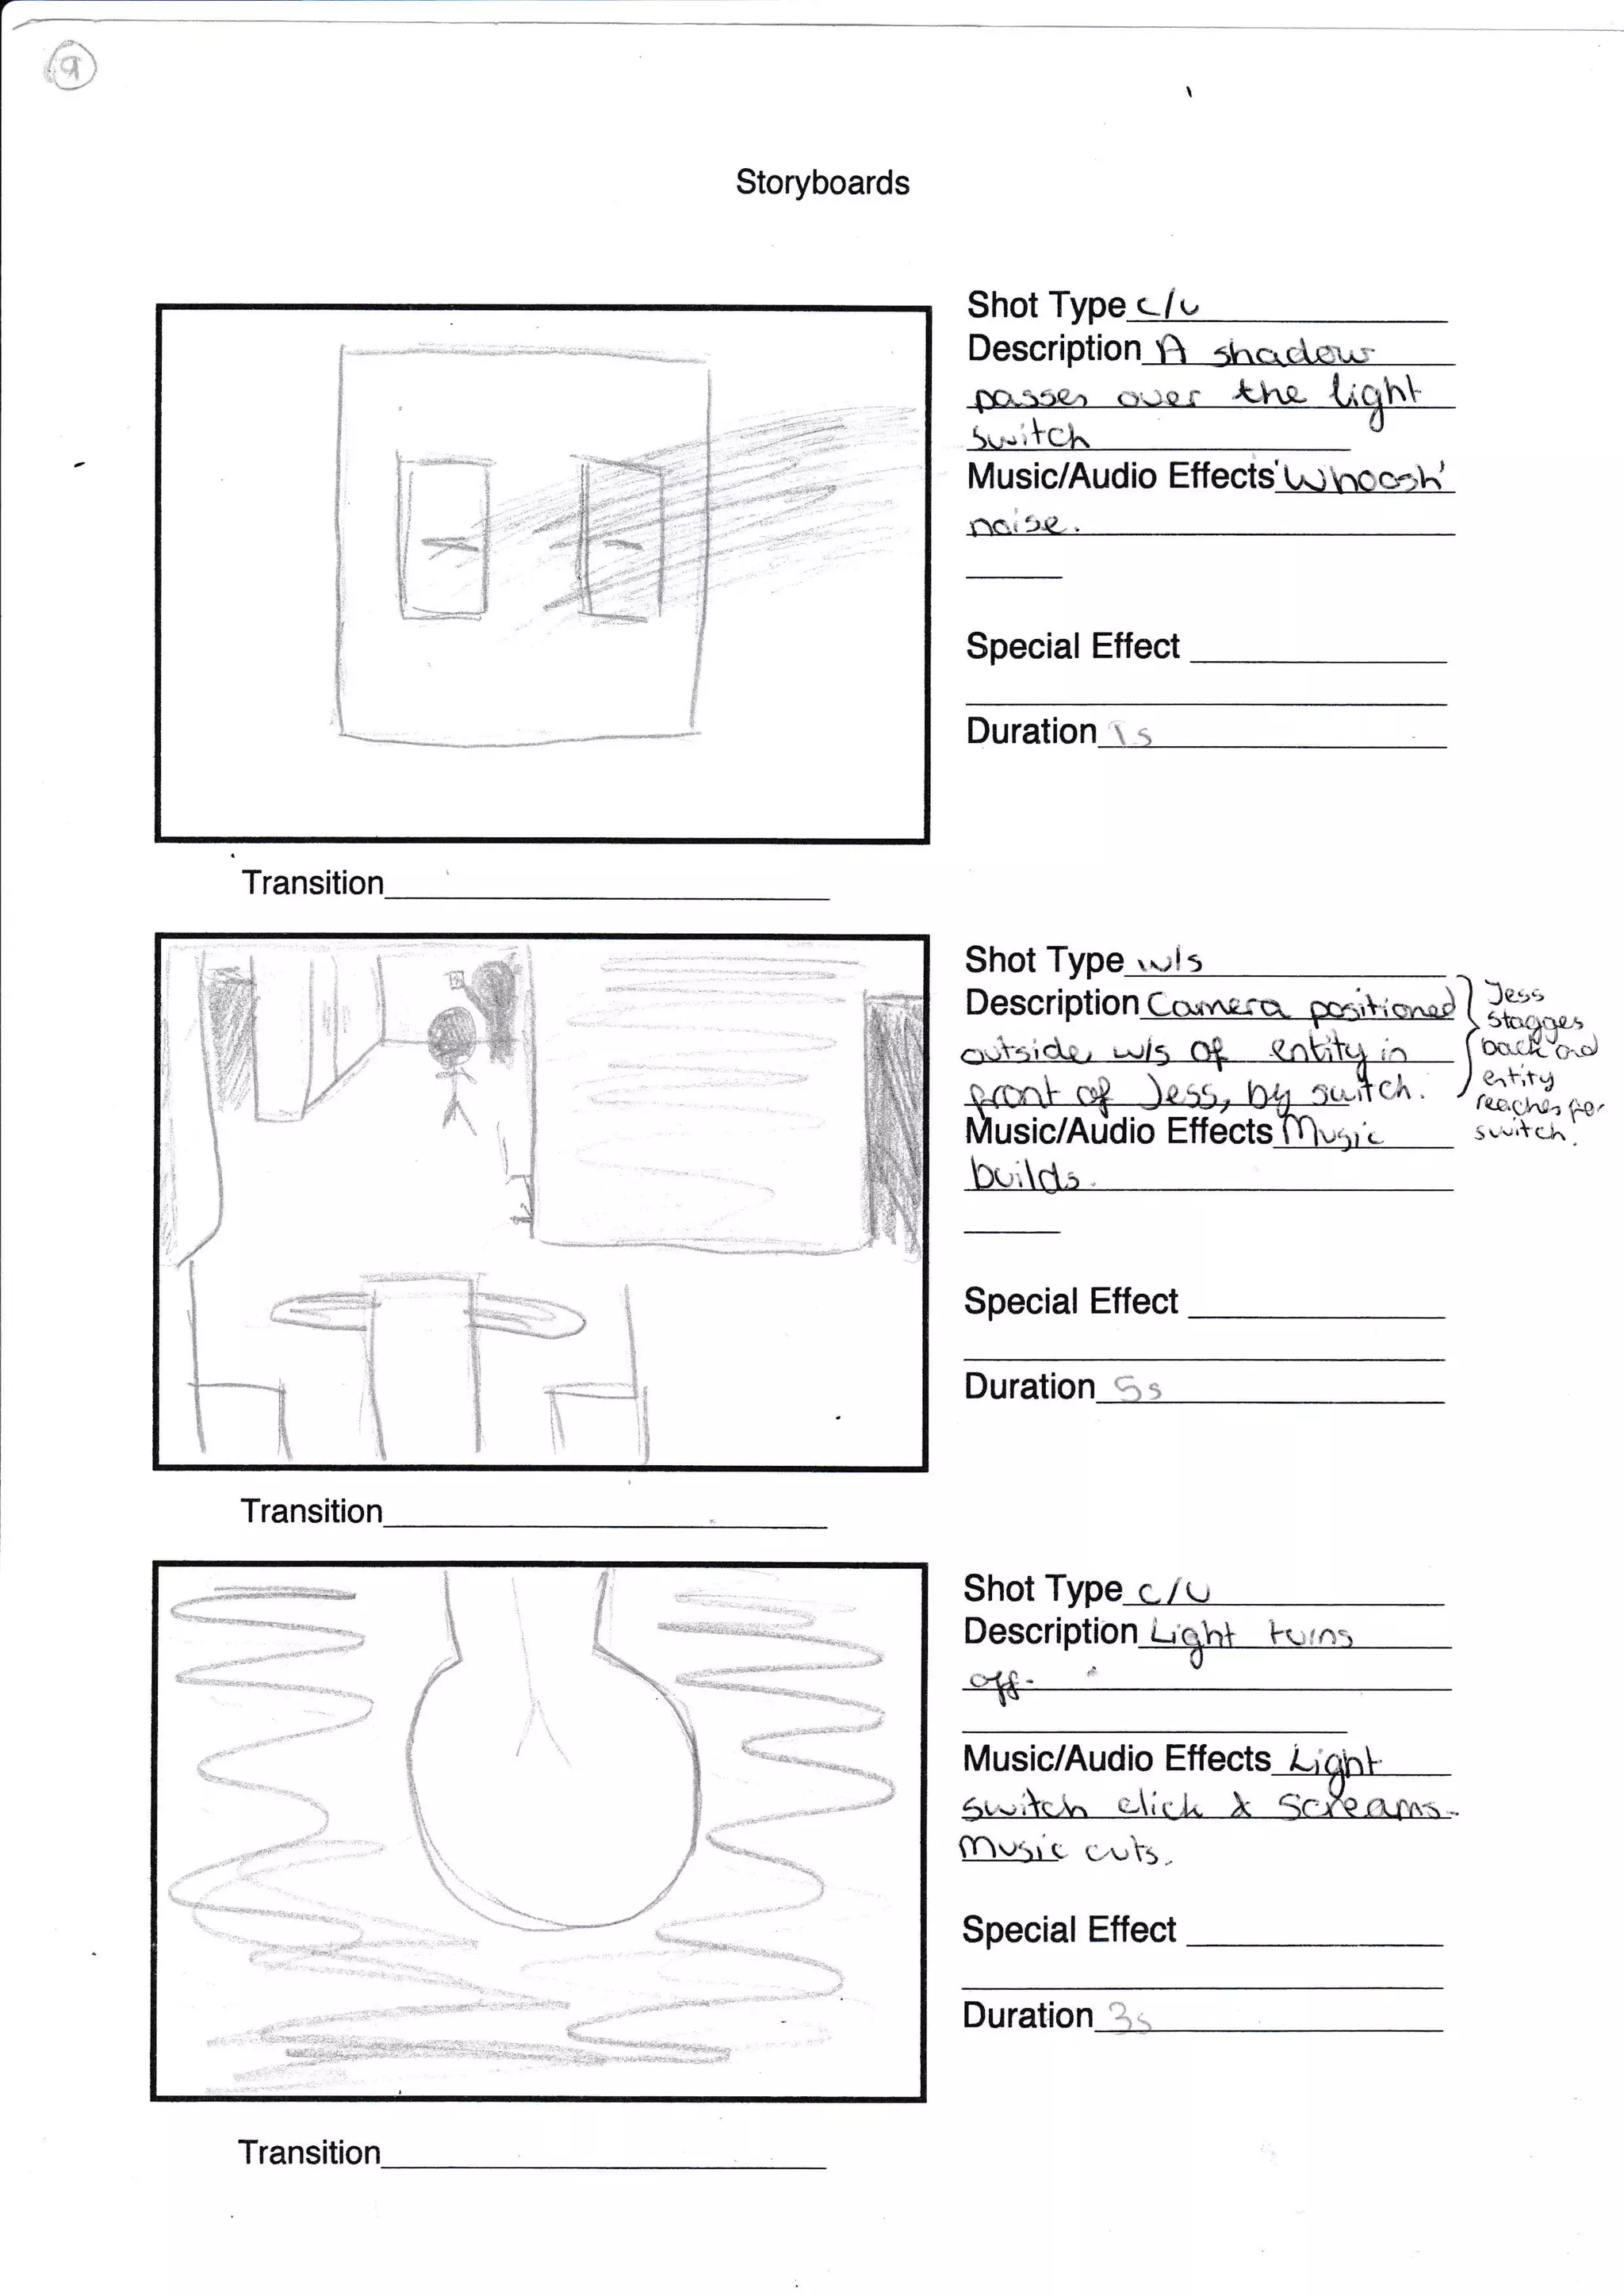 9
Storyboards
Shot Type c/u
Description A shadow
passes over the light
switch
Music/Audio Effects 'Whoosh'
noise.
Special Effect
Duration 1s
Transition
Shot Type w/s
Description Camera positioned
outside w/s of entity in
front of Jess, by switch.
Jess
stagges
back and
entity
reaches for
switch.
Music/Audio Effects Music
builds.
Special Effect
Duration 5s
Transition
Shot Type c/u
Description Light turns
off.
Music/Audio Effects Light
switch click & screams.
Music cuts.
Special Effect
Duration 3s
Transition